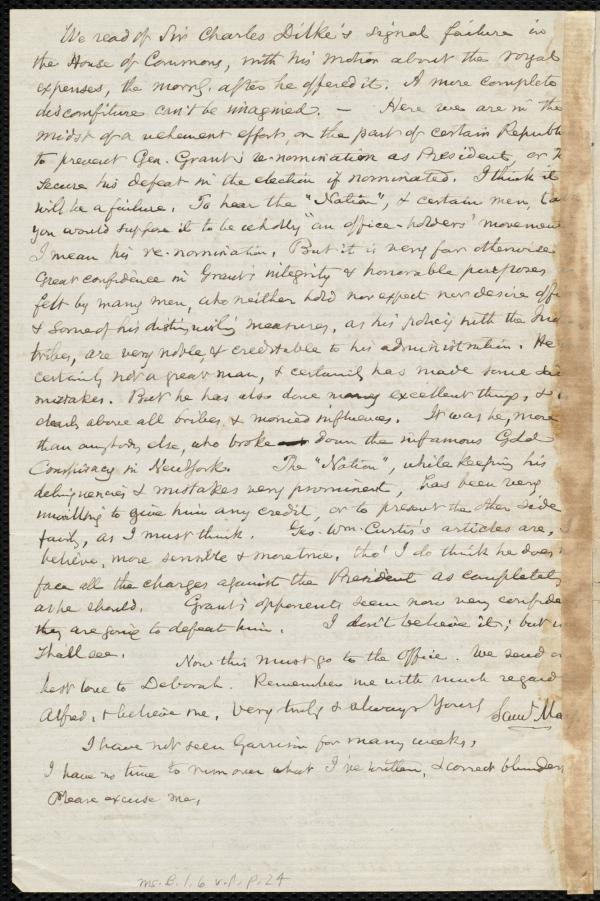 We read of Sir Charles Dilke's signal failure in
the House of Commons, with his motion about the royal
expenses, the morng. after he offered it. A more complete
discomfiture can't be imagined. — Here we are in the
midst of a vehement effort, on the part of certain Republi
to prevent Gen. Grant's re-nomination as President, or to
secure his defeat in the election if nominated. I think it
will be a failure. To hear the "Nation", & certain men,
you would suppose it to be wholly "an office-holders' movement
I mean his re-nomination. But it is very far otherwise
Great confidence in Grant's integrity & honorable purposes
felt by many men, who neither hold nor expect nor desire offi
& some of his distinguishg measures, as his policy with the Ind
tribes, are very noble & creditable to his administration. He
certainly not a great man, & certainly has made some
mistakes. But he has also done many excellent things, &
clearly above all bribes & monied influences. It was he, more
than anybody else, who broke down the infamous Gold
Conspiracy in New York. The "Nation", while keeping his
delinquencies & mistakes very prominent, has been very
unwilling to give him any credit, or to present the other side
fairly, as I must think. Geo. Wm. Curtis's articles are, I
believe, more sensible & more true, tho' I do think he does n
face all the charges against the President as completely
as he should. Grant's opponents seem now very confide
they are going to defeat him. I don't believe it; but
shall see. Now this must go to the office. We send o
best love to Deborah. Remember me with much regard
Alfred, & believe me, very truly & always Yours Saml. May
I have not seen Garrison for many weeks.
I have no time to run over what I've written, & correct blunders
Please excuse me.
ms. B. 1. 6 v. 1. p. 24